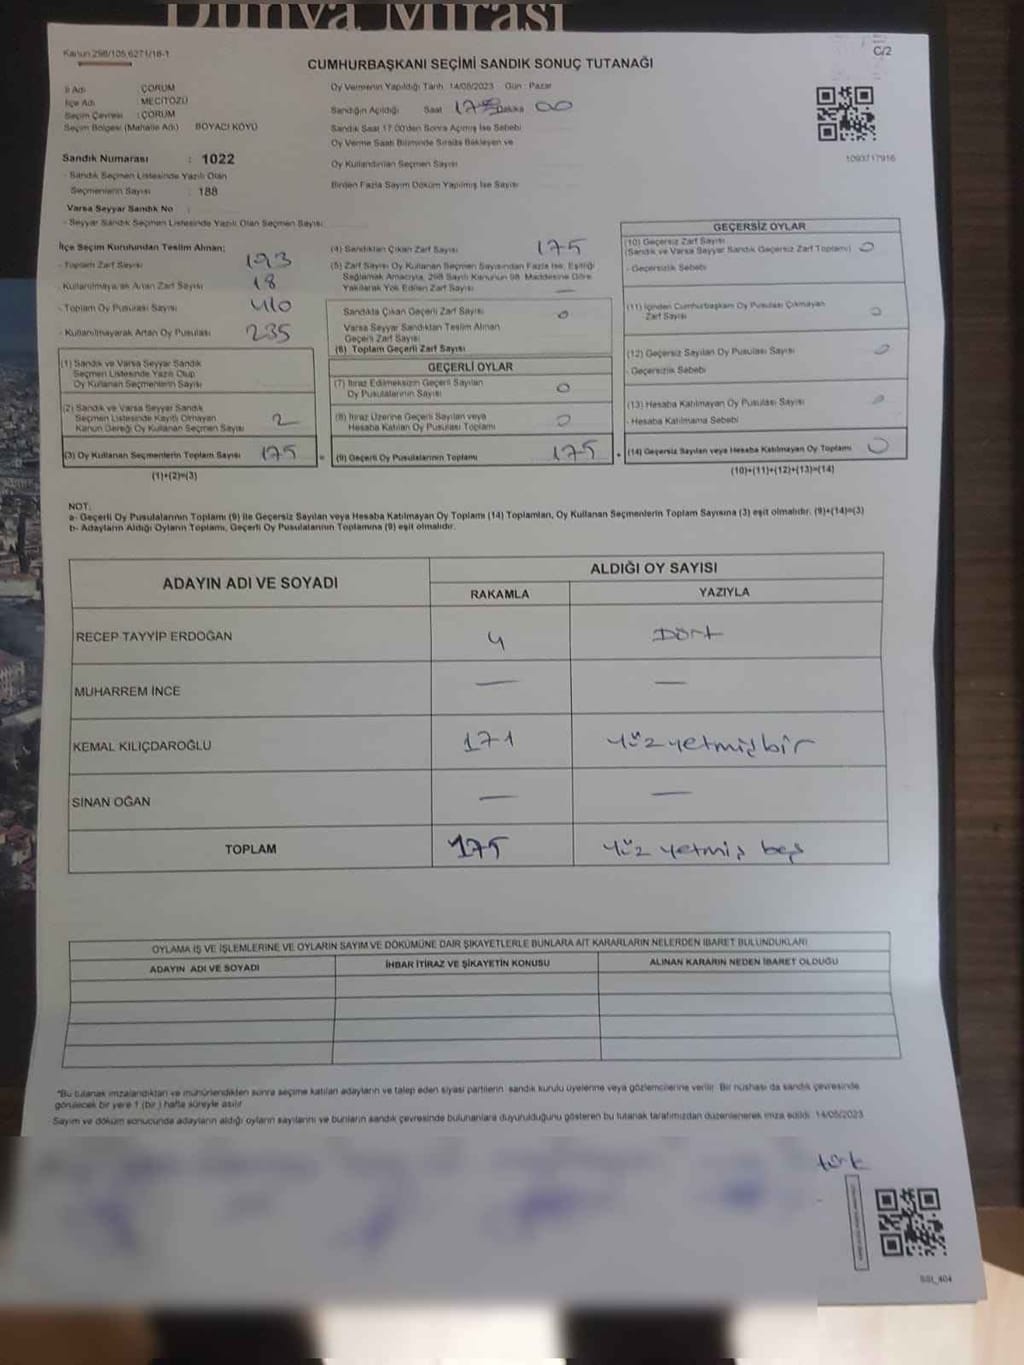 Dünya Mirası
Kanun 298/105,6271/18-1
C/2
CUMHURBAŞKANI SEÇİMİ SANDIK SONUÇ TUTANAĞI
İl Adı ÇORUM
İlçe Adı MECİTÖZÜ
Seçim Çevresi : ÇORUM
Seçim Bölgesi (Mahalle Adı) BOYACI KÖYÜ
Oy Vermenin Yapıldığı Tarih 14/05/2023 Gün : Pazar
Sandığın Açıldığı Saat 17 Dakika 00
Sandık Saat 17:00'den Sonra Açılmış İse Sebebi
Oy Verme Saati Bitiminde Sırada Bekleyen ve
Oy Kullandırılan Seçmen Sayısı
Birden Fazla Sayım Döküm Yapılmış İse Sayısı
1093717916
Sandık Numarası : 1022
- Sandık Seçmen Listesinde Yazılı Olan
Seçmenlerin Sayısı : 188
Varsa Seyyar Sandık No :
- Seyyar Sandık Seçmen Listesinde Yazılı Olan Seçmen Sayısı:
İlçe Seçim Kurulundan Teslim Alınan;
- Toplam Zarf Sayısı 193
- Kullanılmayarak Artan Zarf Sayısı 18
- Toplam Oy Pusulası Sayısı 410
- Kullanılmayarak Artan Oy Pusulası 235
(1) Sandık ve Varsa Seyyar Sandık
Seçmen Listesinde Yazılı Olup
Oy Kullanan Seçmenlerin Sayısı
(2) Sandık ve Varsa Seyyar Sandık
Seçmen Listesinde Kayıtlı Olmayan
Kanun Gereği Oy Kullanan Seçmen Sayısı 2
(3) Oy Kullanan Seçmenlerin Toplam Sayısı 175
(1)+(2)=(3)
(4) Sandıktan Çıkan Zarf Sayısı 175
(5) Zarf Sayısı Oy Kullanan Seçmen Sayısından Fazla İse, Eşitliği
Sağlamak Amacıyla, 298 Sayılı Kanunun 98. Maddesine Göre
Yakılarak Yok Edilen Zarf Sayısı —
Sandıkta Çıkan Geçerli Zarf Sayısı 0
Varsa Seyyar Sandıktan Teslim Alınan
Geçerli Zarf Sayısı
(6) Toplam Geçerli Zarf Sayısı
GEÇERLİ OYLAR
(7) İtiraz Edilmeksizin Geçerli Sayılan
Oy Pusulalarının Sayısı 0
(8) İtiraz Üzerine Geçerli Sayılan veya
Hesaba Katılan Oy Pusulası Toplamı 0
= (9) Geçerli Oy Pusulalarının Toplamı 175
GEÇERSİZ OYLAR
(10) Geçersiz Zarf Sayısı
(Sandık ve Varsa Seyyar Sandık Geçersiz Zarf Toplamı) 0
- Geçersizlik Sebebi
(11) İçinden Cumhurbaşkanı Oy Pusulası Çıkmayan
Zarf Sayısı 0
(12) Geçersiz Sayılan Oy Pusulası Sayısı 0
- Geçersizlik Sebebi
(13) Hesaba Katılmayan Oy Pusulası Sayısı 0
- Hesaba Katılmama Sebebi
+ (14) Geçersiz Sayılan veya Hesaba Katılmayan Oy Toplamı 0
(10)+(11)+(12)+(13)=(14)
NOT:
a- Geçerli Oy Pusulalarının Toplamı (9) ile Geçersiz Sayılan veya Hesaba Katılmayan Oy Toplamı (14) Toplamları, Oy Kullanan Seçmenlerin Toplam Sayısına (3) eşit olmalıdır. (9)+(14)=(3)
b- Adayların Aldığı Oyların Toplamı, Geçerli Oy Pusulalarının Toplamına (9) eşit olmalıdır.
ADAYIN ADI VE SOYADI
ALDIĞI OY SAYISI
RAKAMLA YAZIYLA
RECEP TAYYİP ERDOĞAN 4 Dört
MUHARREM İNCE — —
KEMAL KILIÇDAROĞLU 171 Yüz yetmiş bir
SİNAN OĞAN — —
TOPLAM 175 Yüz yetmiş beş
OYLAMA İŞ VE İŞLEMLERİNE VE OYLARIN SAYIM VE DÖKÜMÜNE DAİR ŞİKAYETLERLE BUNLARA AİT KARARLARIN NELERDEN İBARET BULUNDUKLARI
ADAYIN ADI VE SOYADI İHBAR İTİRAZ VE ŞİKAYETİN KONUSU ALINAN KARARIN NEDEN İBARET OLDUĞU
*Bu tutanak imzalandıktan ve mühürlendikten sonra seçime katılan adayların ve talep eden siyasi partilerin sandık kurulu üyelerine veya gözlemcilerine verilir. Bir nüshası da sandık çevresinde
görülecek bir yere 1 (bir) hafta süreyle asılır
Sayım ve döküm sonucunda adayların aldığı oyların sayılarını ve bunların sandık çevresinde bulunanlara duyurulduğunu gösteren bu tutanak tarafımızdan düzenlenerek imza edildi. 14/05/2023